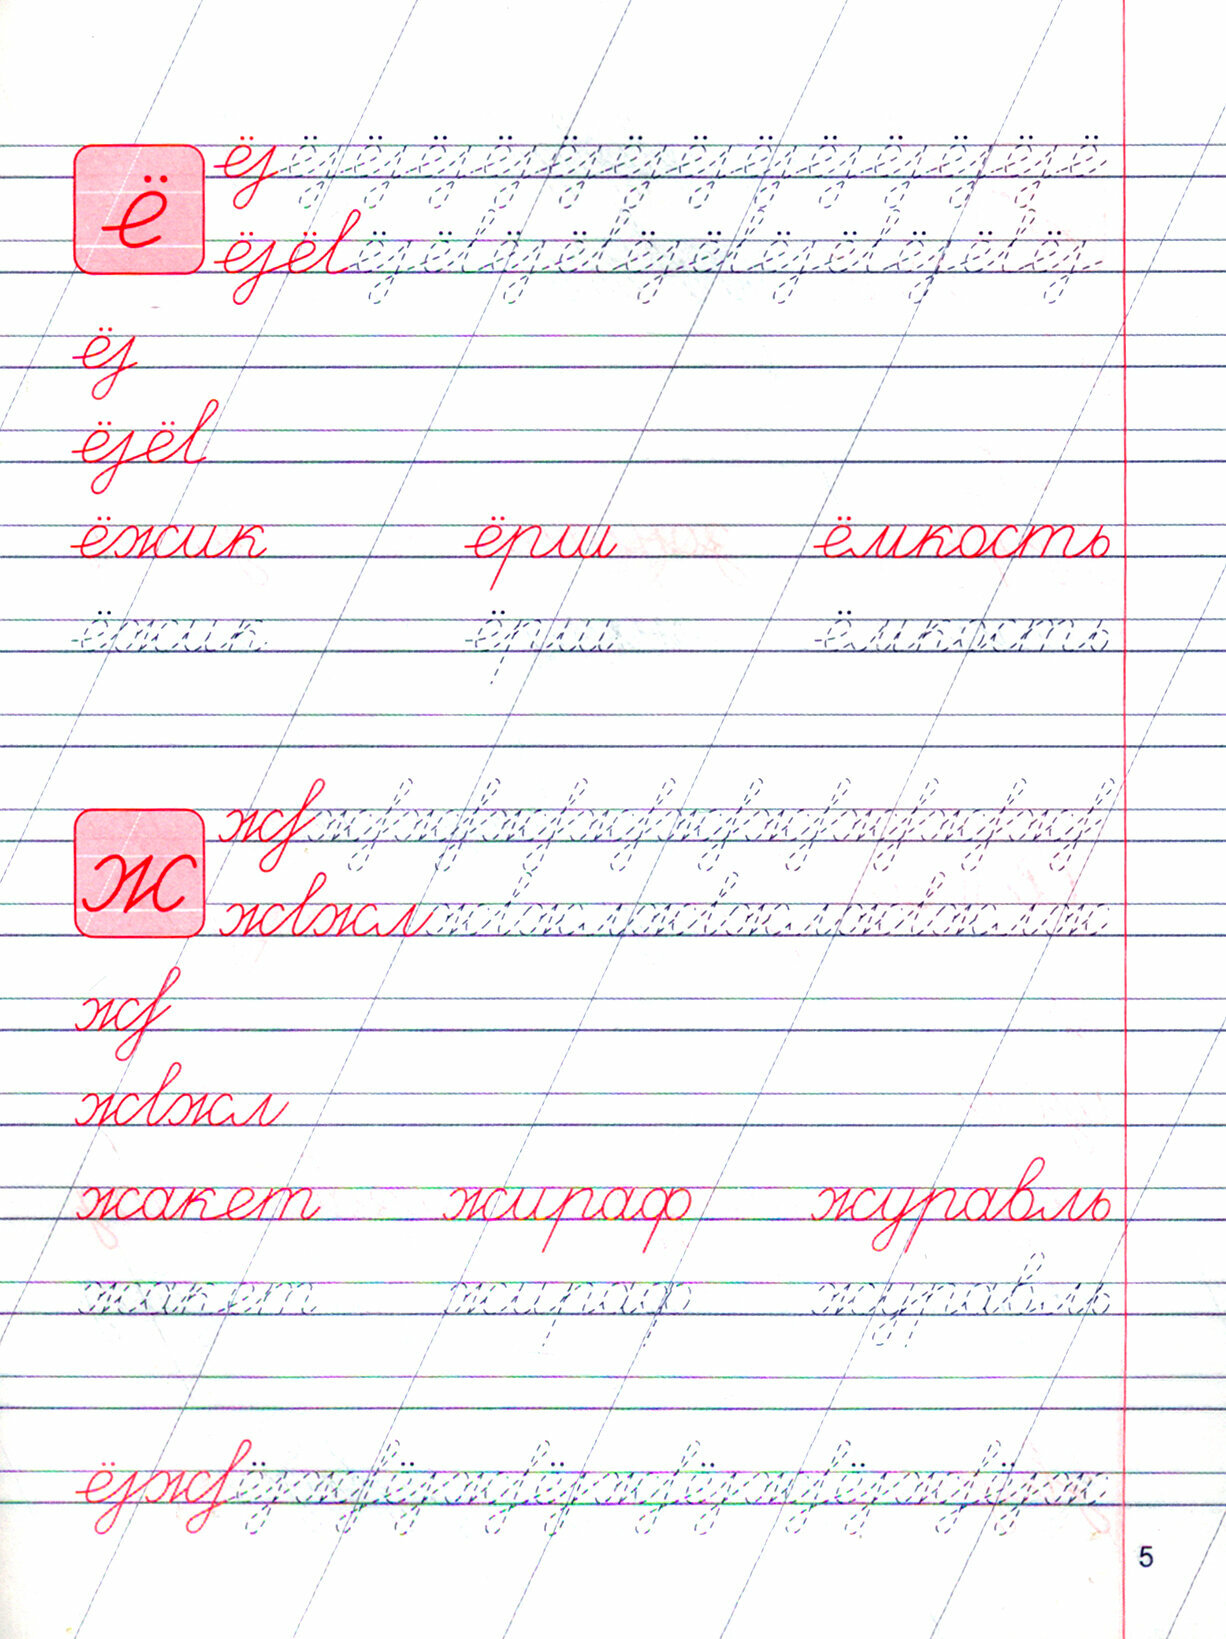 ё
ё
ёё
ё
ёё
ёжик ёрш ёмкость
ёжик ёрш ёмкость
ж
ж
жжл
ж
жжл
жакет жираф журавль
жакет жираф журавль
ёж
5